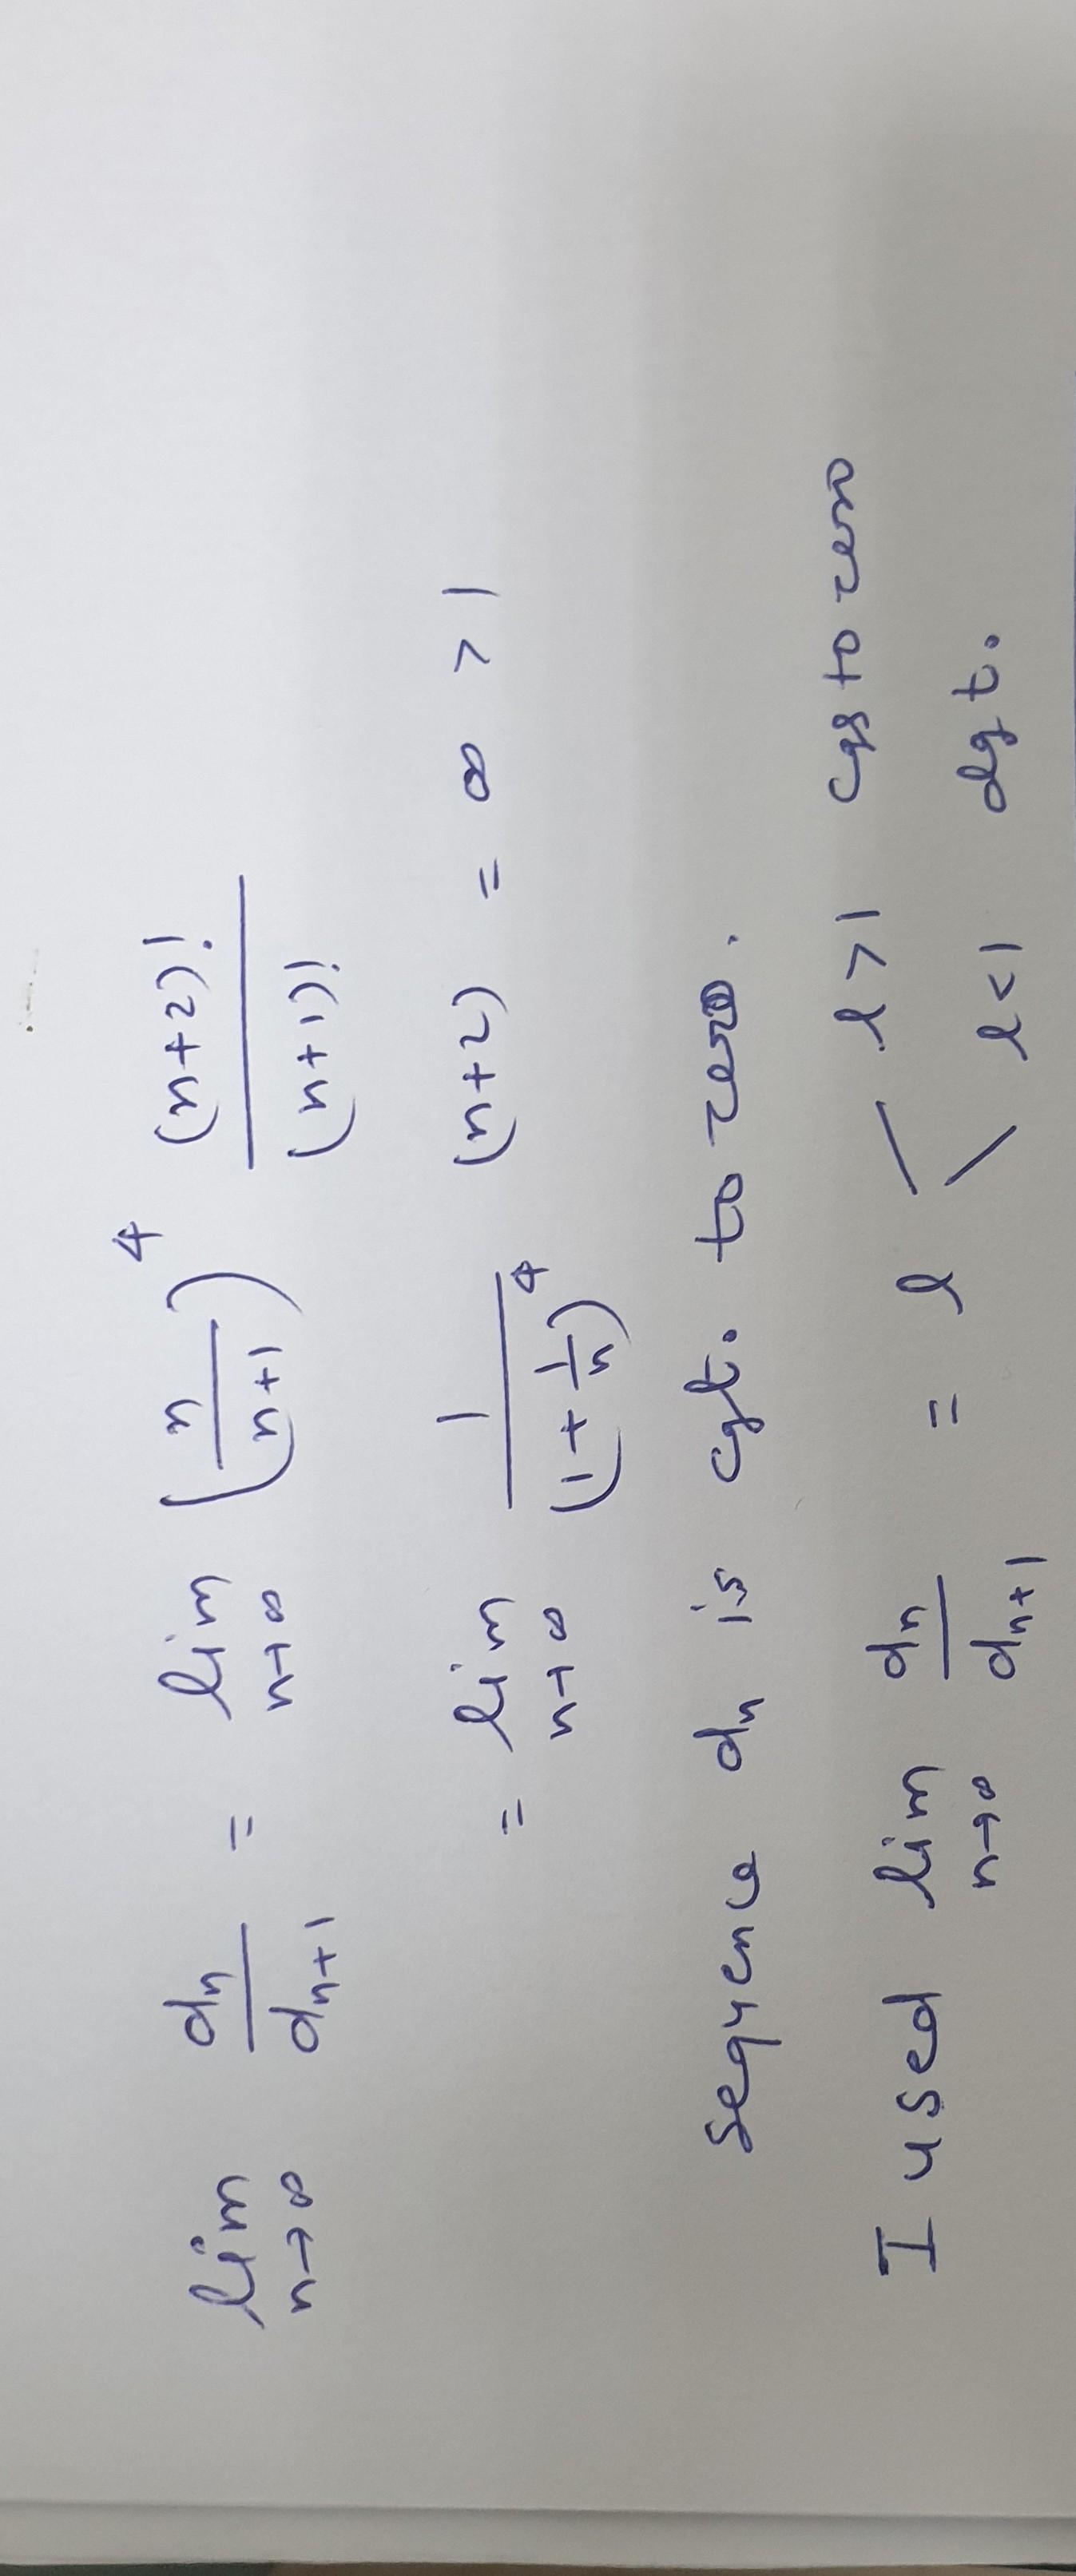 lim n→∞ dn/dn+1 = lim n→∞ (n/n+1)^4 (n+2)!/(n+1)!
= lim n→∞ 1/(1+1/n)^4 (n+2) = ∞ > 1
sequence dn is cgt. to zero.
I used lim n→∞ dn/dn+1 = l
l>1 cgs to zero
l<1 dgt.